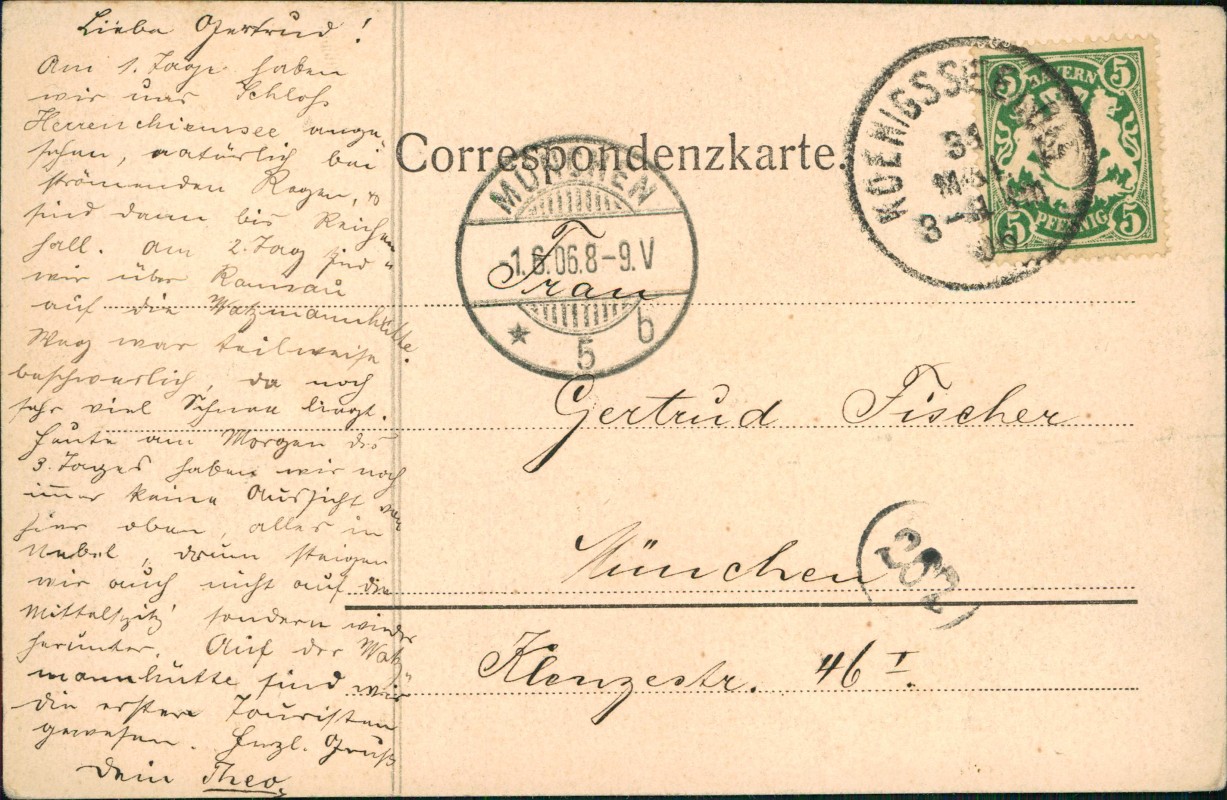 Liebe Gertrud!
Am 1. Tage haben
wir uns Schloß
Herrenchiemsee ange
sehen, natürlich bei
strömenden Regen,
sind dann bis Reichen
hall. Am 2. Tag sind
wir über Ramsau
auf die Watzmannhütte.
Weg war teilweise
beschwerlich, da noch
sehr viel Schnee liegt.
Heute am Morgen des
3. Tages haben wir noch
immer keine Aussicht von
hier oben, alles in
Nebel, drum steigen
wir auch nicht auf die
Mittelspitz' sondern wieder
herunter. Auf der Watz
mannhütte sind wir
die ersten Touristen
gewesen. Herzl. Gruß
Dein Theo.
Correspondenzkarte.
MÜNCHEN
-1.6.06.8-9.V
5 b
KOENIGSSEE
31
MAI
8-
06
5 BAYERN 5
5 PFENNIG 5
Frau
Gertrud Fischer
München
202
Klenzestr. 46 I.